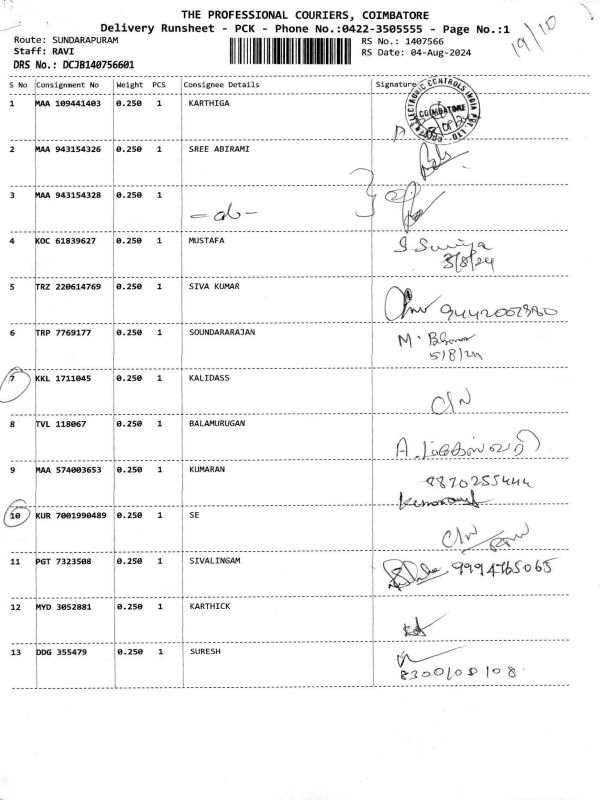 THE PROFESSIONAL COURIERS, COIMBATORE
Delivery Runsheet - PCK - Phone No.:0422-3505555 - Page No.:1
19/10
Route: SUNDARAPURAM
RS No.: 1407566
Staff: RAVI
RS Date: 04-Aug-2024
DRS No.: DCJB140756601
S No Consignment No Weight PCS Consignee Details Signature
1 MAA 109441403 0.250 1 KARTHIGA
COIMBATORE
2 MAA 943154326 0.250 1 SREE ABIRAMI
3 MAA 943154328 0.250 1
- do -
4 KOC 61839627 0.250 1 MUSTAFA S. Suriya
3/8/24
5 TRZ 220614769 0.250 1 SIVA KUMAR
6 TRP 7769177 0.250 1 SOUNDARARAJAN M.
5/8/24
7 KKL 1711045 0.250 1 KALIDASS
C/N
8 TVL 118067 0.250 1 BALAMURUGAN
9 MAA 574003653 0.250 1 KUMARAN
8870255444
10 KUR 7001990489 0.250 1 SE
C/N
11 PGT 7323508 0.250 1 SIVALINGAM 9994765065
12 MYD 3052881 0.250 1 KARTHICK
13 DDG 355479 0.250 1 SURESH
8300108108